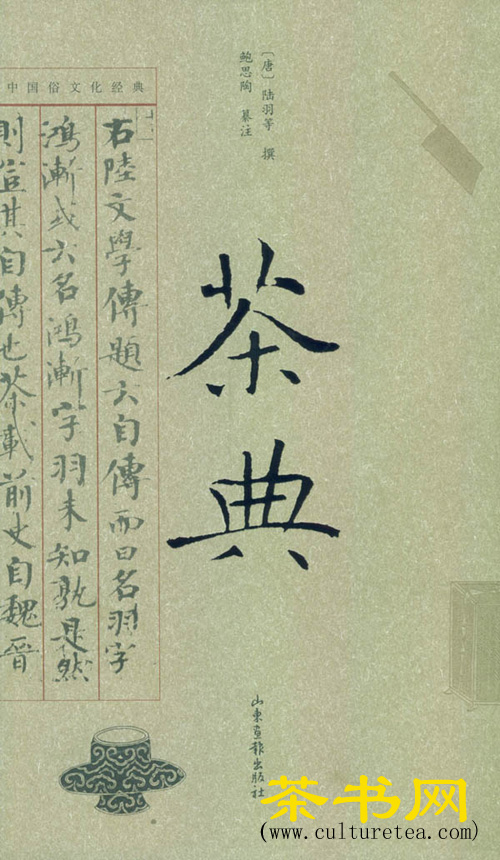 中国俗文化经典
〔唐〕陆羽等 撰
鲍思陶 纂注
茶典
右陸文學傳題云自傳而曰名羽字
鴻漸或云名鴻漸字羽未知孰是然
則豈其自傳也茶載前史自魏晉
山东画报出版社
茶书网
(www.culturetea.com)